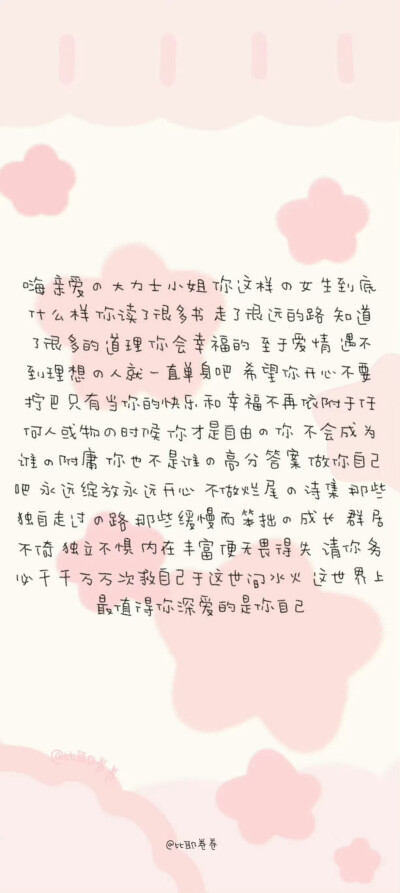 嗨亲爱の大力士小姐你这样の女生到底
什么样你读了很多书走了很远的路 知道
了很多的道理你会幸福的 至于爱情 遇不
到理想の人就一直单身吧 希望你开心不要
拧巴只有当你的快乐和幸福不再依附于任
何人或物の时候你才是自由の你 不会成为
谁の附庸你也不是谁の高分答案做你自己
吧 永远绽放永远开心 不做烂尾の诗集那些
独自走过の路那些缓慢而笨拙の成长 群居
不倚独立不惧内在丰富便无畏得失 请你务
必千千万万次救自己于这世间水火 这世界上
最值得你深爱的是你自己
@比耶卷卷
@比耶卷卷